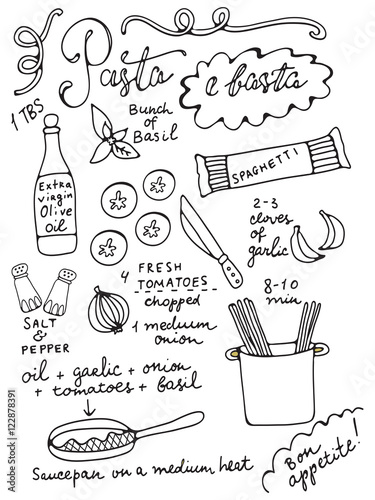 Pasta
e basta
1 TBS
Bunch
of
Basil
Extra
virgin
Olive
oil
SPAGHETTI
2-3
cloves
of
garlic
4 FRESH
TOMATOES
chopped
1 medium
onion
8-10
min
SALT
&
PEPPER
oil + garlic + onion
+ tomatoes + basil
Saucepan on a medium heat
Bon
appetite!
Adobe Stock | #122878391